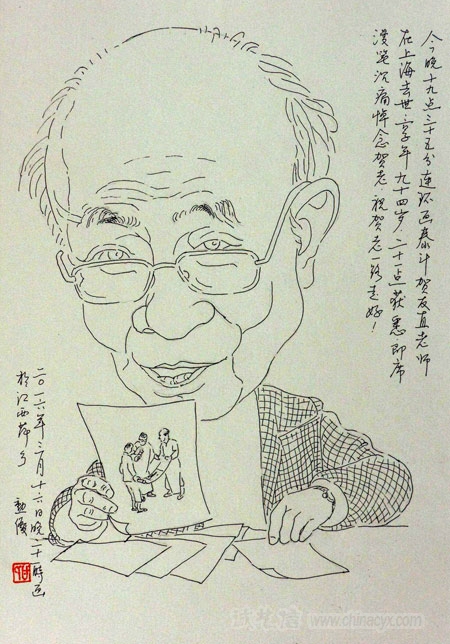 今晚十九点三十五分连环画泰斗贺友直老师
在上海去世,享年九十四岁,二十一点获悉即席
沉痛悼念贺老,祝贺老一路走好!
二〇一六年三月十六日晚二十時画
於江西萍乡
www.chinacyx.com